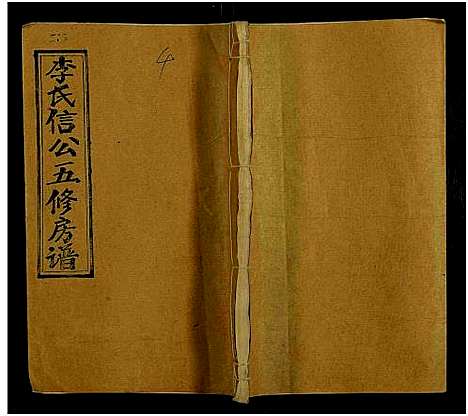 李氏信公五修房譜
4